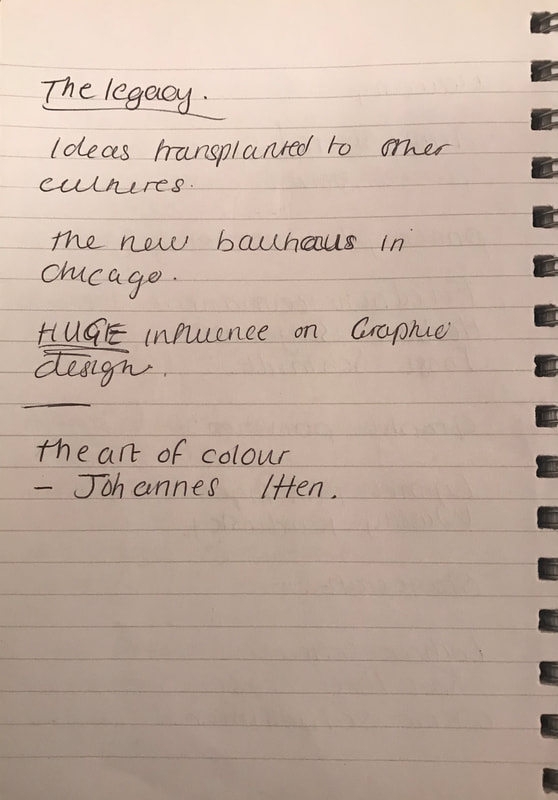 The legacy.
Ideas transplanted to other
cultures.
the new bauhaus in
chicago.
HUGE influence on Graphic
design.
the art of colour
- Johannes Itten.